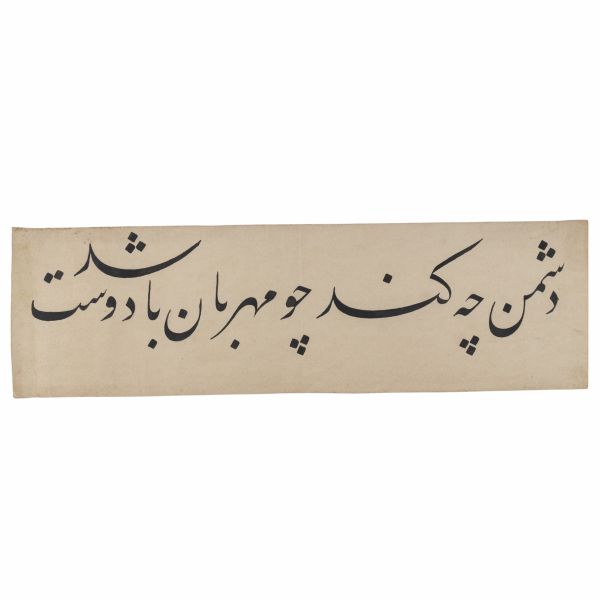 دشمن چه کند چو مهربان باشد دوست